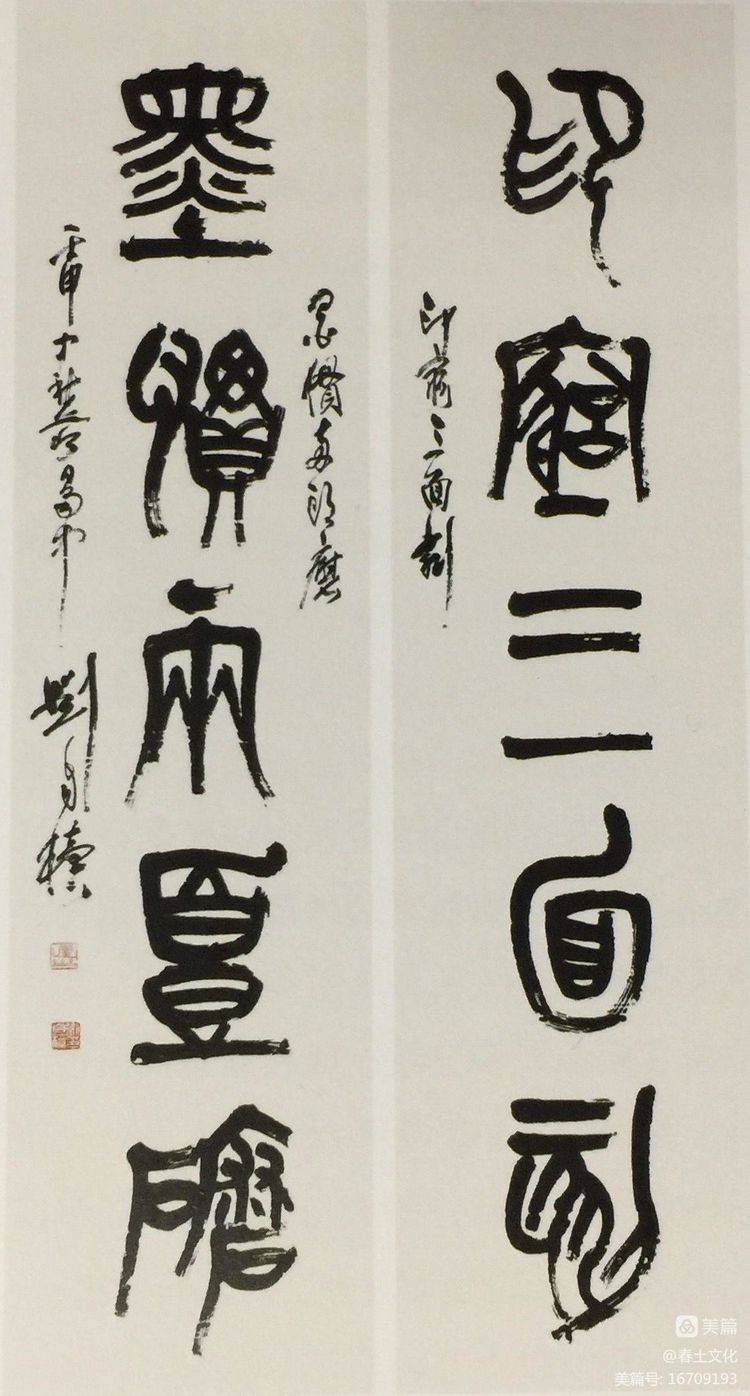 印窮三面刻
印窮三面刻
墨慣兩頭磨
墨慣兩頭磨
劉自櫝
美篇
@春土文化
美篇号: 16709193